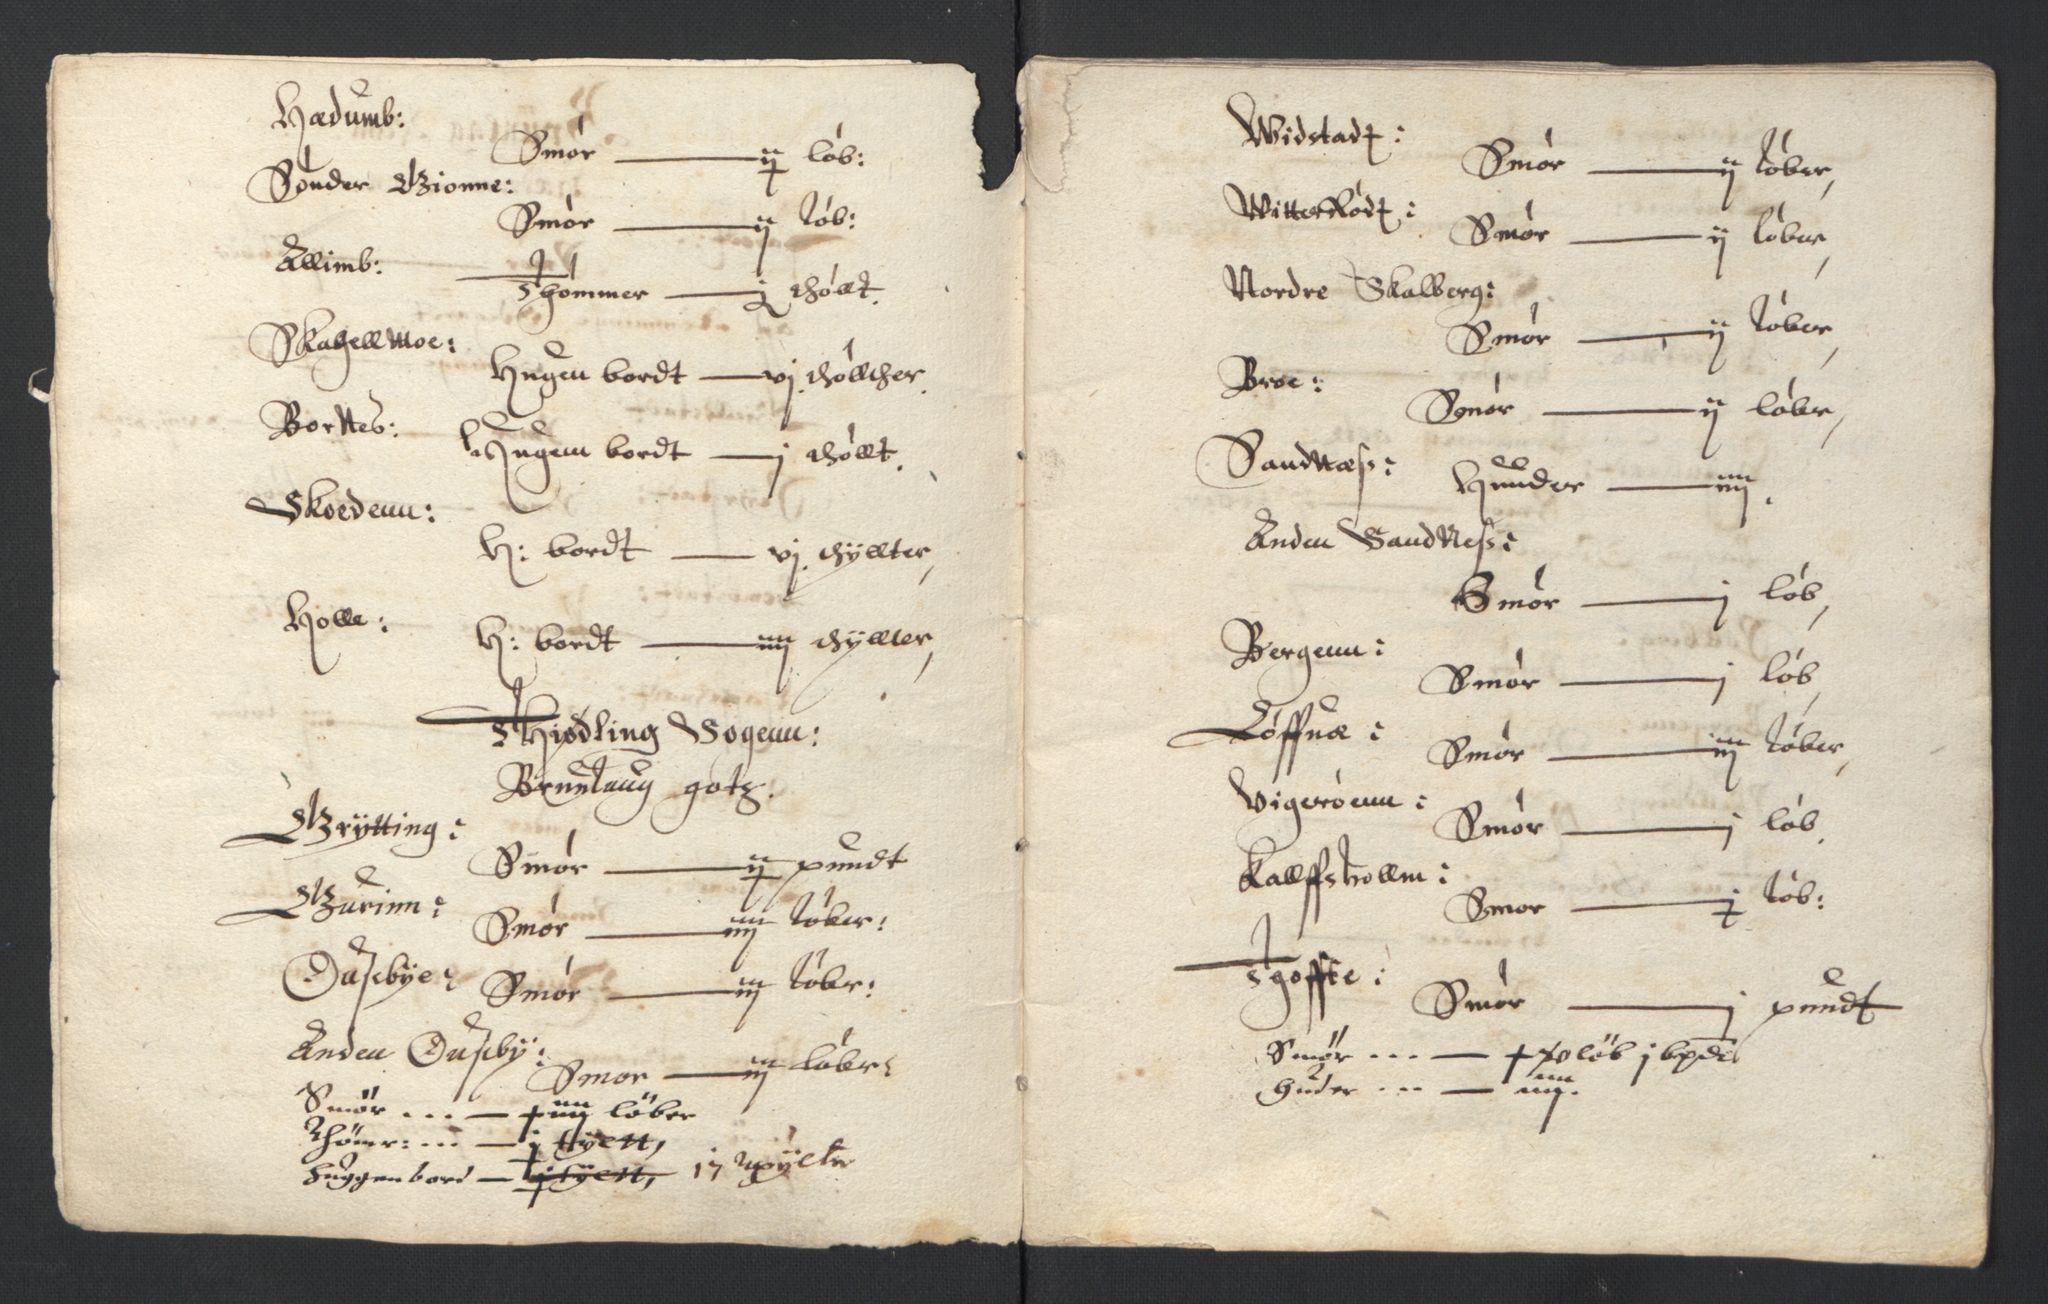 Hædumb:
Smør — ij løb:
Sønder Giønne:
Smør — ij løb:
Allimb:
Thømmer — j thøllt.
Skagell Moe:
Hugen bordt — vj. thøllther.
Borttes:
Hugen bordt — j thøllt.
Skoedenn:
H: bordt — vj. thyllter,
Holle:
H: bordt — iiij thyllter,
Thiødling Sogenn:
Brunlaug gotz.
Grytting:
Smør — ij pundt
Gurinn:
Smør — iiij løber:
Ousbye:
Smør — iij løber:
Anden Ousby:
Smør — iij løber:
Smør ... — løber
Thømr: ... — j tyllt,
Huggenbord — 17 tyllter
Widstadt:
Smør — ij løber,
Witterslødt:
Smør — ij løber,
Nordre Skalberg:
Smør — ij løber,
Broe:
Smør — ij løber,
Sandnæs:
Huuder — iiij.
Anden Sandnes:
Smør — j løb,
Bergenn:
Smør — j løb,
Løffnæ:
Smør — iiij løber,
Vigerøenn:
Smør — j løb.
Kallffsholm:
Smør — j løb:
Thoffte:
Smør — j pundt
Smør ... — løb j bpd
Huder ... — iiij.